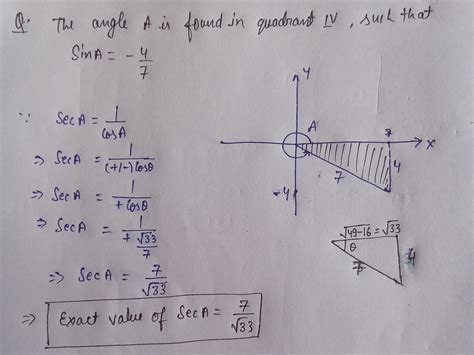 Q: The angle A is found in quadrant IV, such that
Sin A = - 4/7
∵ Sec A = 1/Cos A
⇒ Sec A = 1/(+/-) Cos θ
⇒ Sec A = 1/+ Cos θ
⇒ Sec A = 1/+ √33/7
⇒ Sec A = 7/√33
⇒ Exact value of Sec A = 7/√33
Y
A
7
X
4
7
-4
√49-16 = √33
θ
7
4